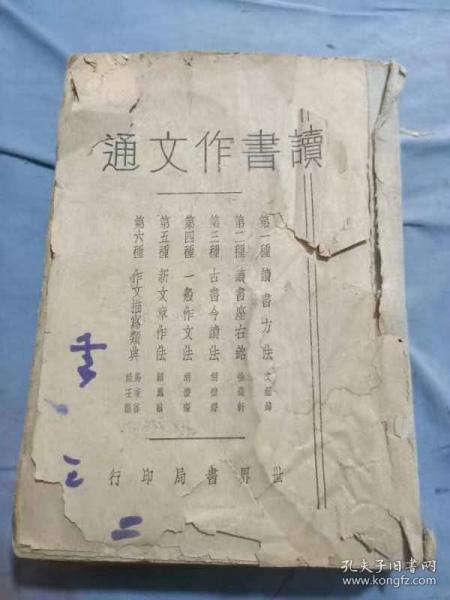 讀書作文通
第一種 讀書方法
第二種 讀書座右銘
第三種 古書今讀法 胡懷琛
第四種 一般作文法 胡懷琛
第五種 新文章作法
第六種 作文描寫類典
世界書局印行
孔夫子旧书网
www.kongfz.com